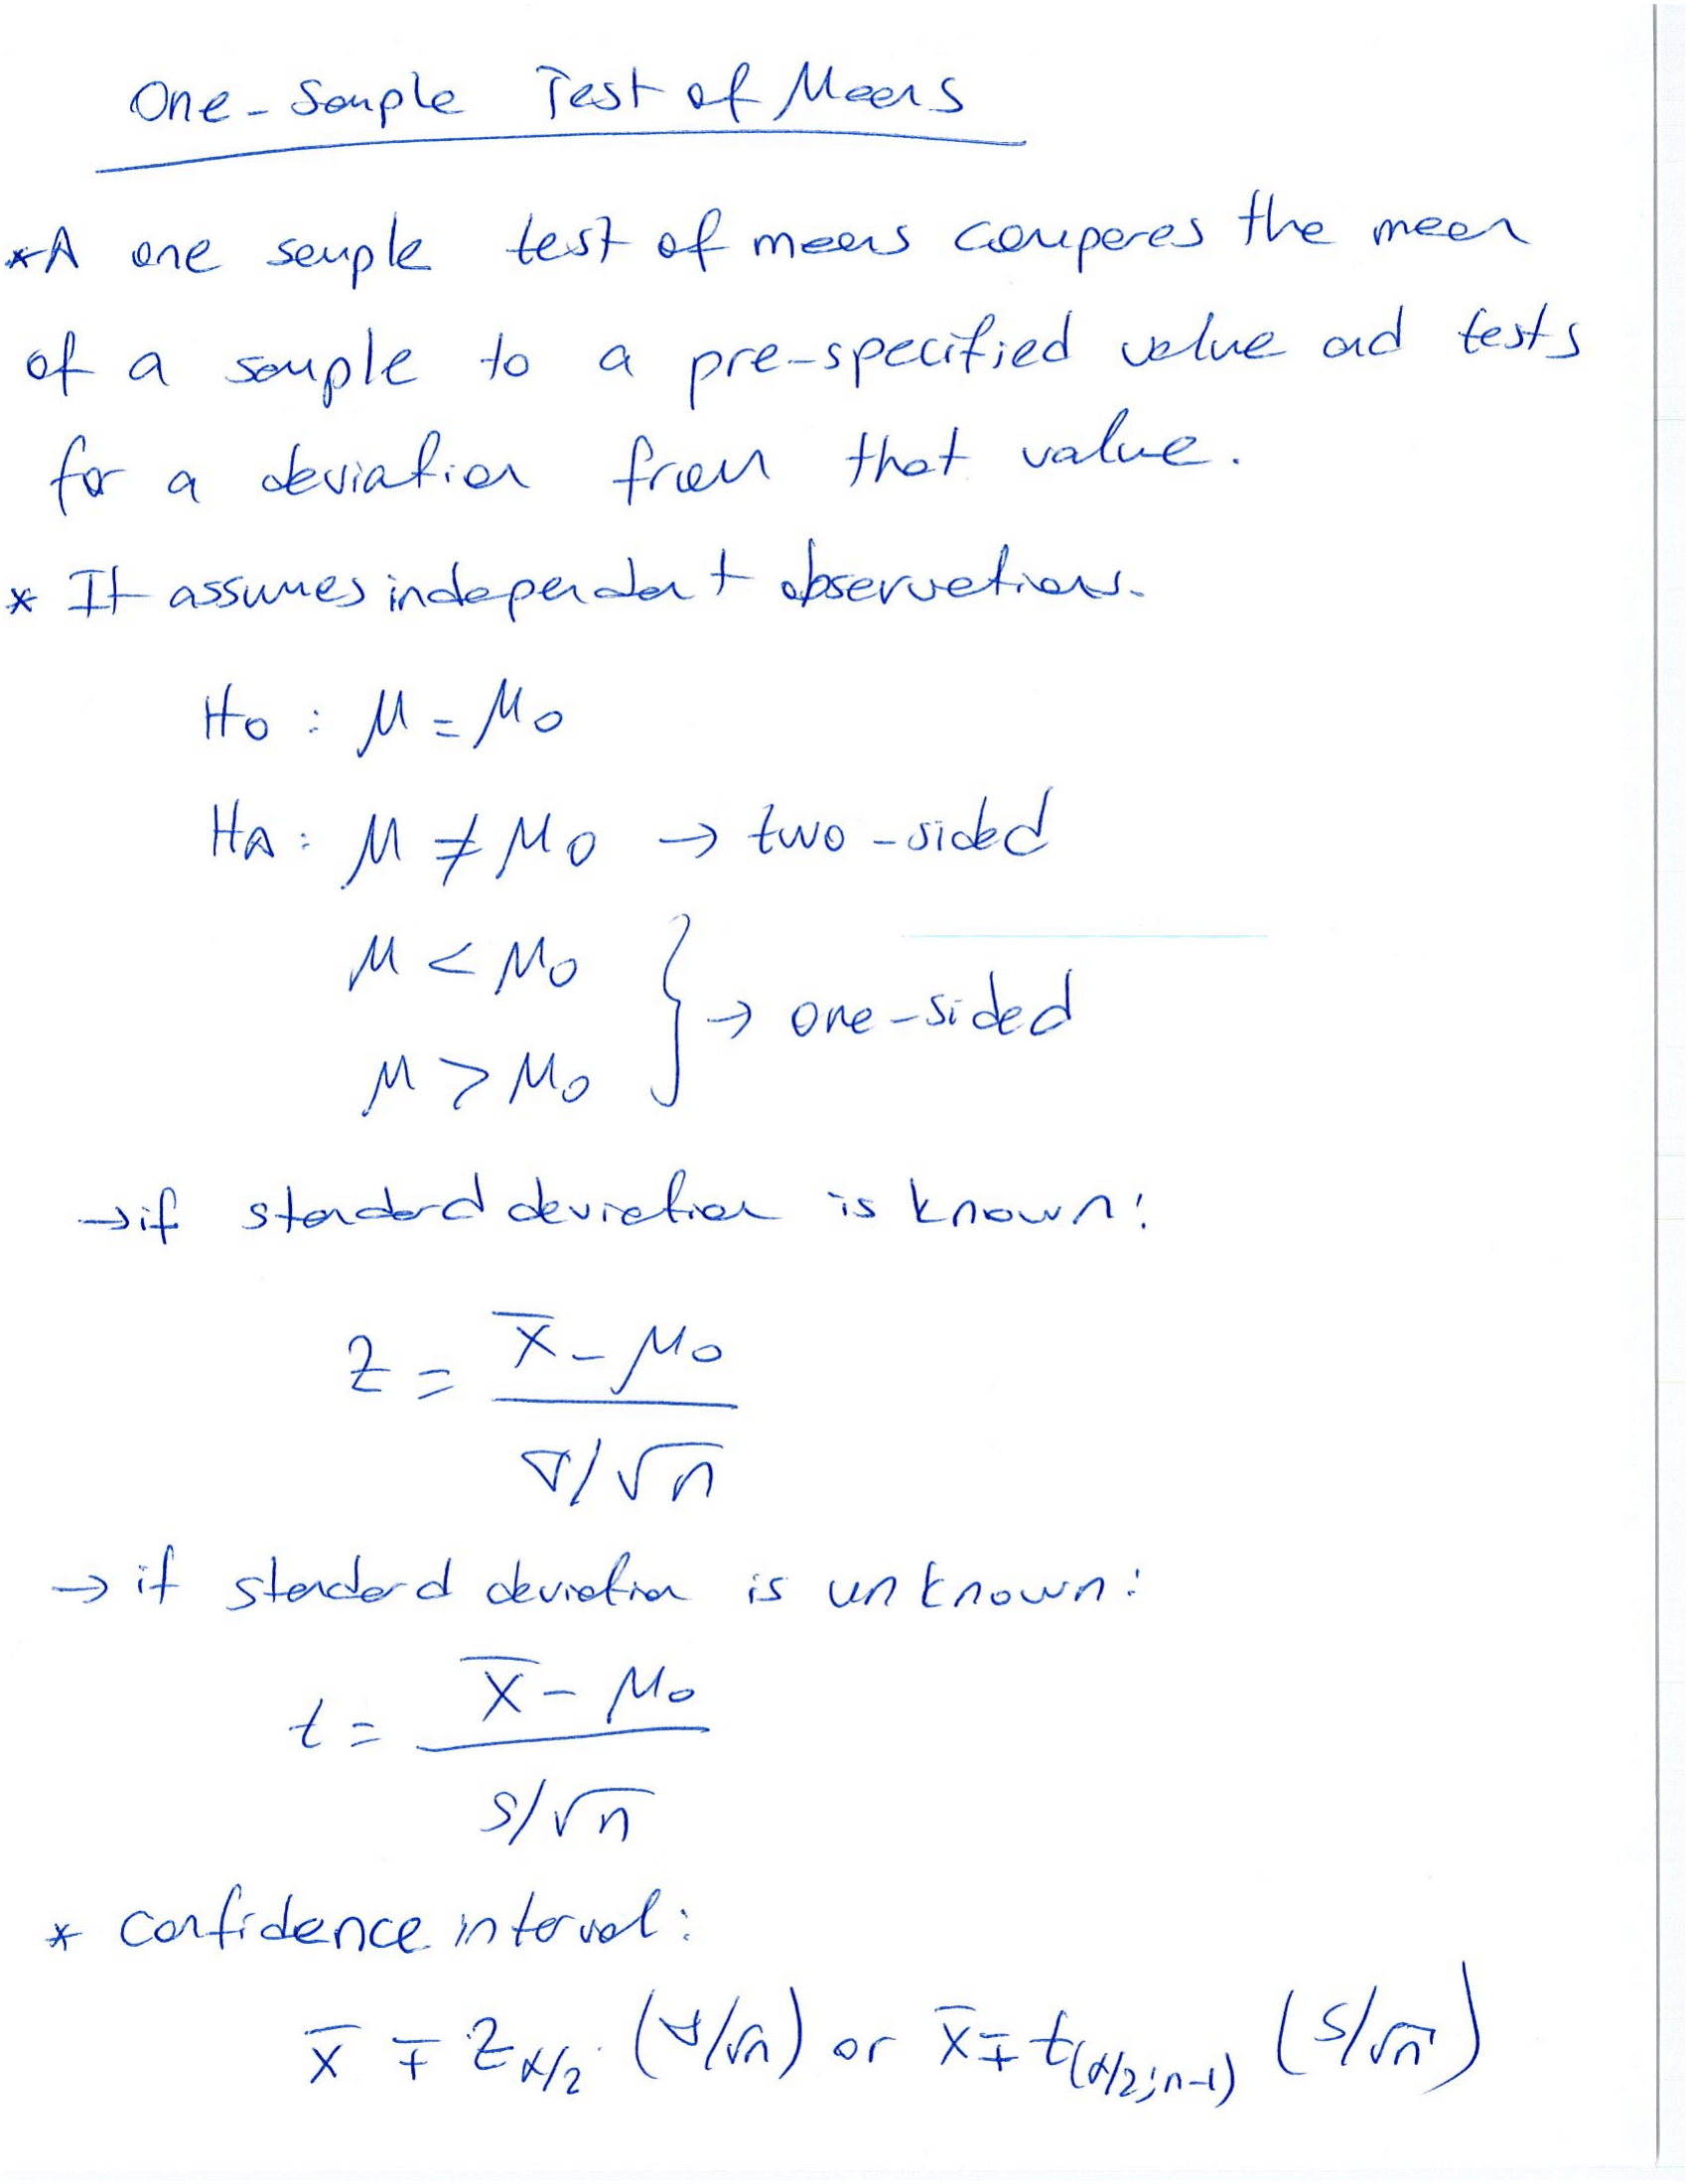 One-Sample Test of Means
*A one sample test of means compares the mean
of a sample to a pre-specified value and tests
for a deviation from that value.
* It assumes independent observations.
H₀ : μ = μ₀
Hᴀ : μ ≠ μ₀ → two-sided
μ < μ₀
} → one-sided
μ > μ₀
→ if standard deviation is known:
z = (x̄ - μ₀) / (σ/√n)
→ if standard deviation is unknown:
t = (x̄ - μ₀) / (s/√n)
* Confidence interval:
x̄ ∓ z_α/2 . (σ/√n) or x̄ ∓ t_(α/2;n-1) (s/√n)